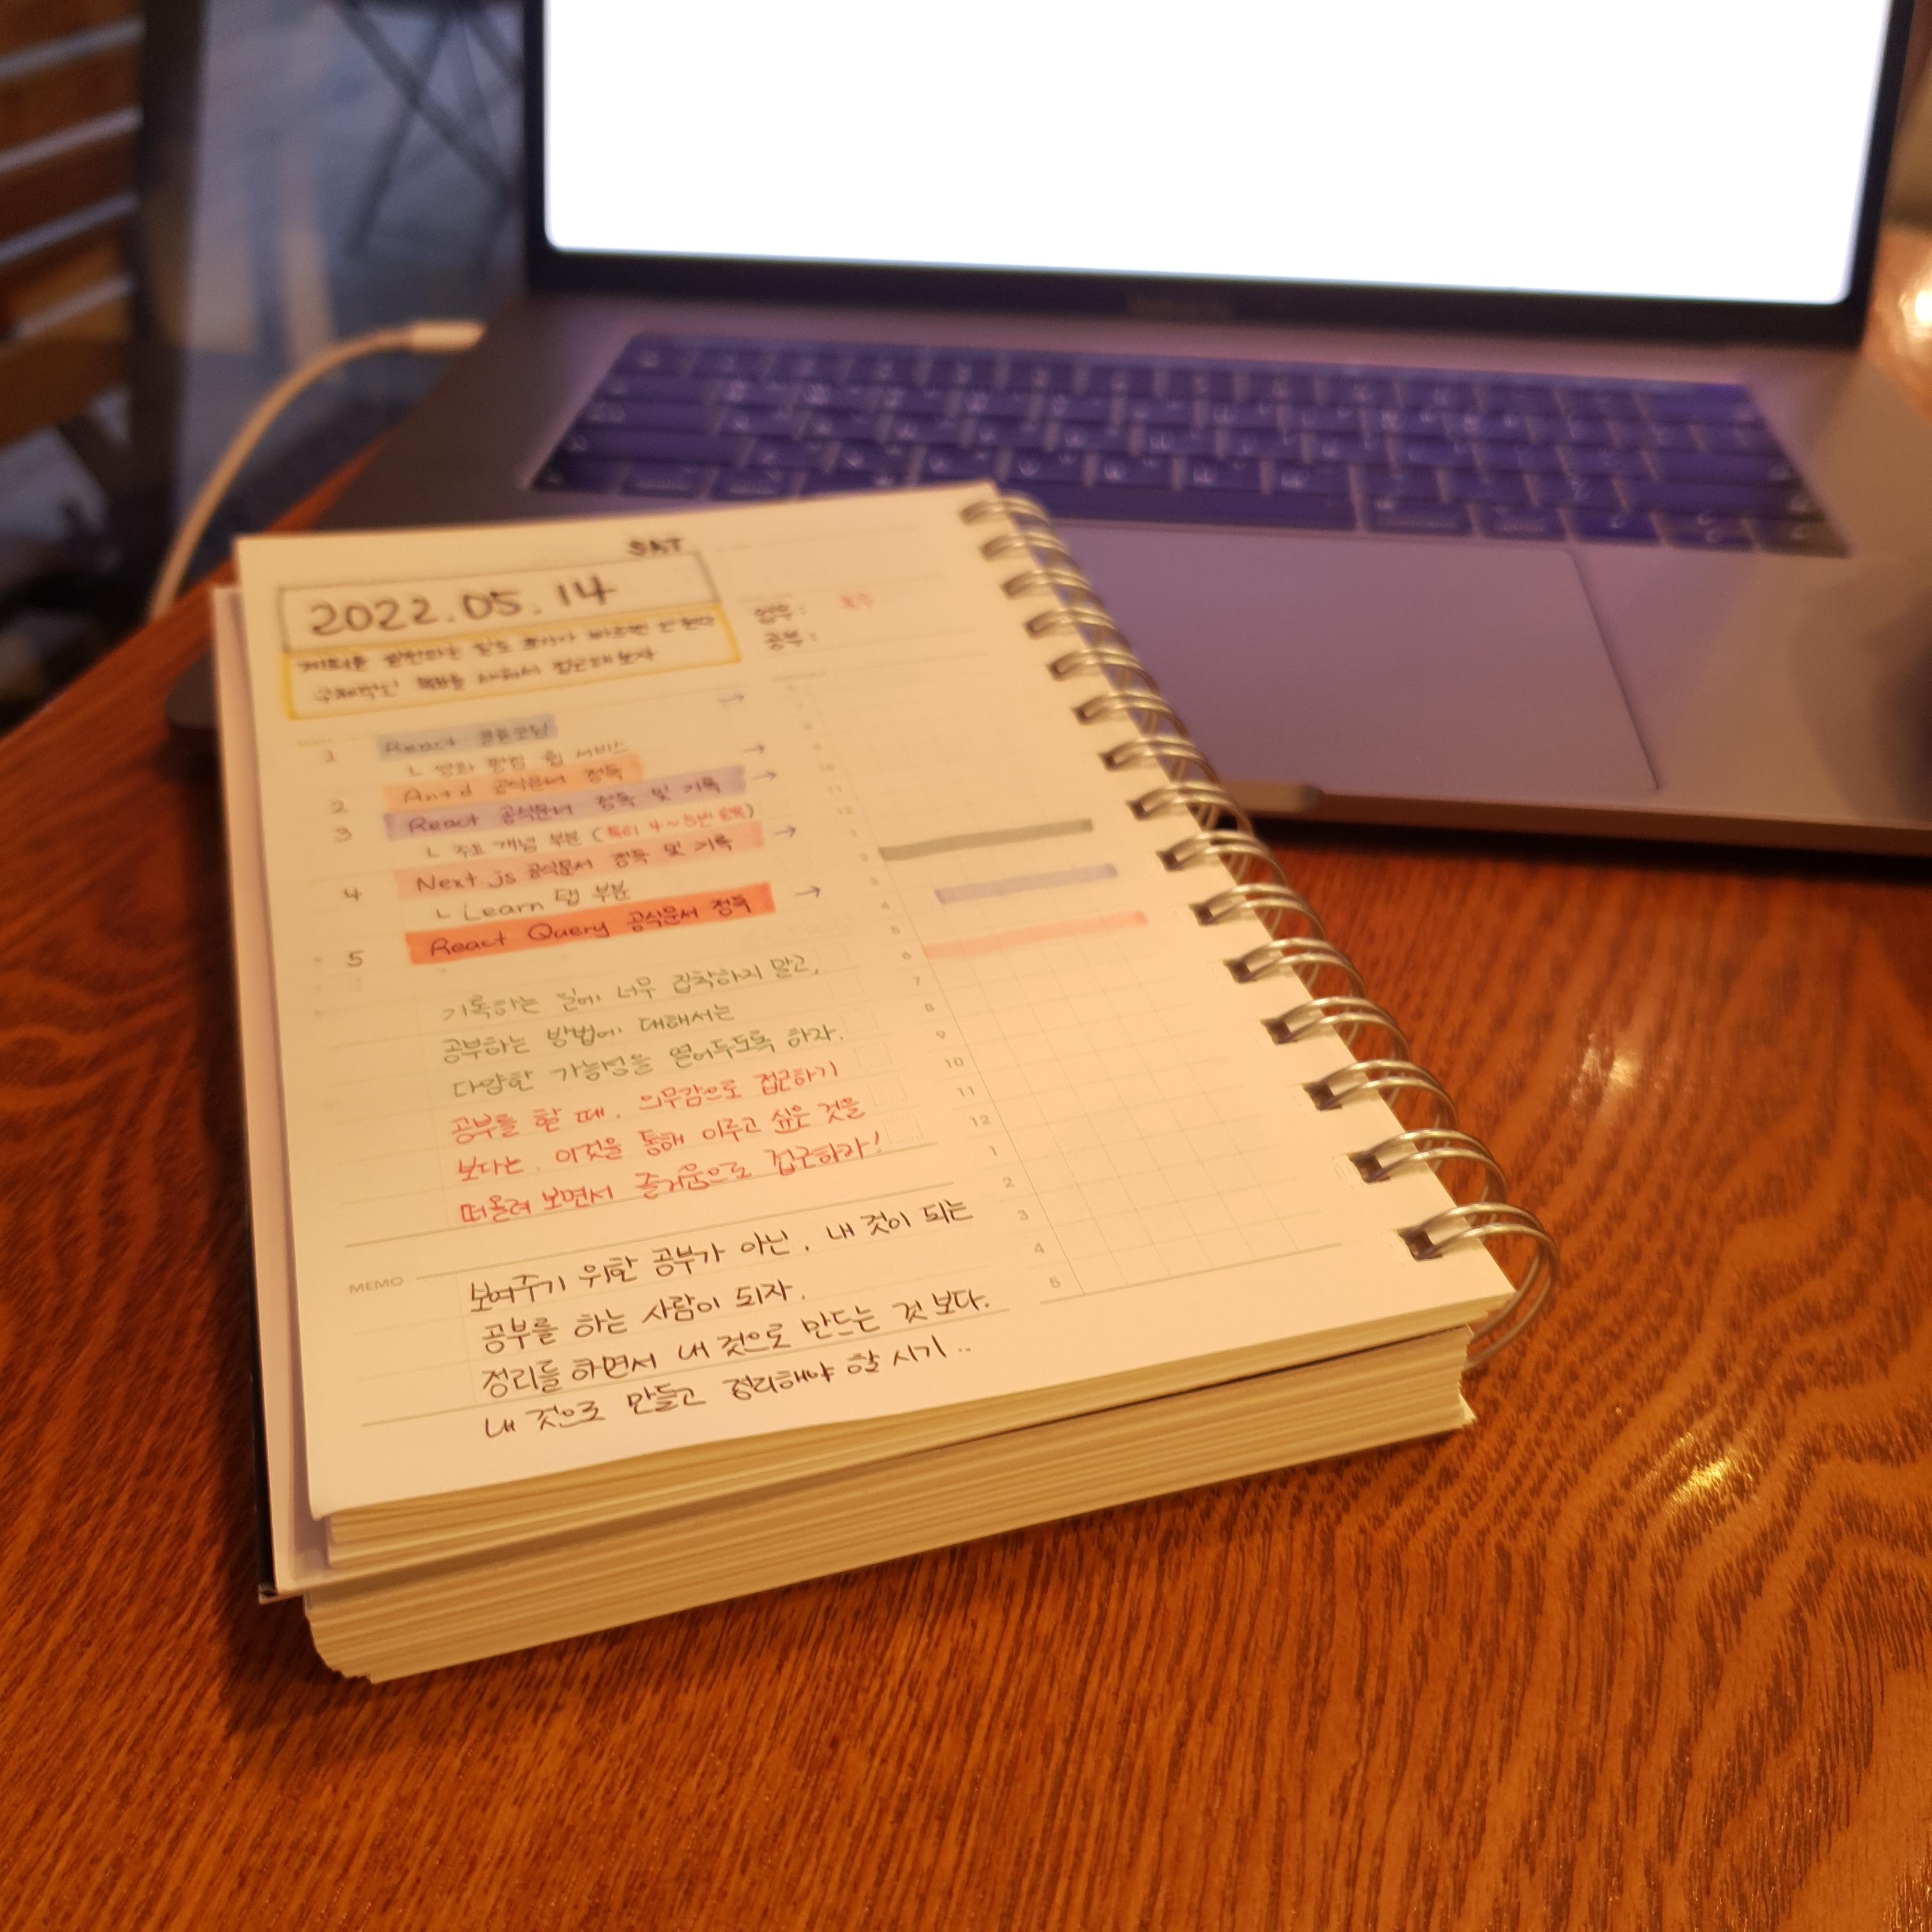 SAT
2022.05.14
계획을 실천하는 일도 휴가가 빠르면 안된다
구체적인 목표를 세워서 접근해보자
업무 : 휴무
공부 :
1 React 클론코딩
ㄴ 영화 평점 웹 서비스
2 Antd 공식문서 정독
3 React 공식문서 정독 및 기록
ㄴ 주요 개념 부분 (특히 4~5번 항목)
4 Next.js 공식문서 정독 및 기록
ㄴ Learn 탭 부분
5 React Query 공식문서 정독
기록하는 일에 너무 집착하지 말고,
공부하는 방법에 대해서는
다양한 가능성을 열어두도록 하자.
공부를 할 때, 의무감으로 접근하기
보다는, 이것을 통해 이루고 싶은 것을
떠올려 보면서 즐거움으로 접근하라!
MEMO
보여주기 위한 공부가 아닌, 내 것이 되는
공부를 하는 사람이 되자.
정리를 하면서 내 것으로 만드는 것 보다.
내 것으로 만들고 정리해야 할 시기..
7
8
9
10
11
12
1
2
3
4
5
6
7
8
9
10
11
12
1
2
3
4
5